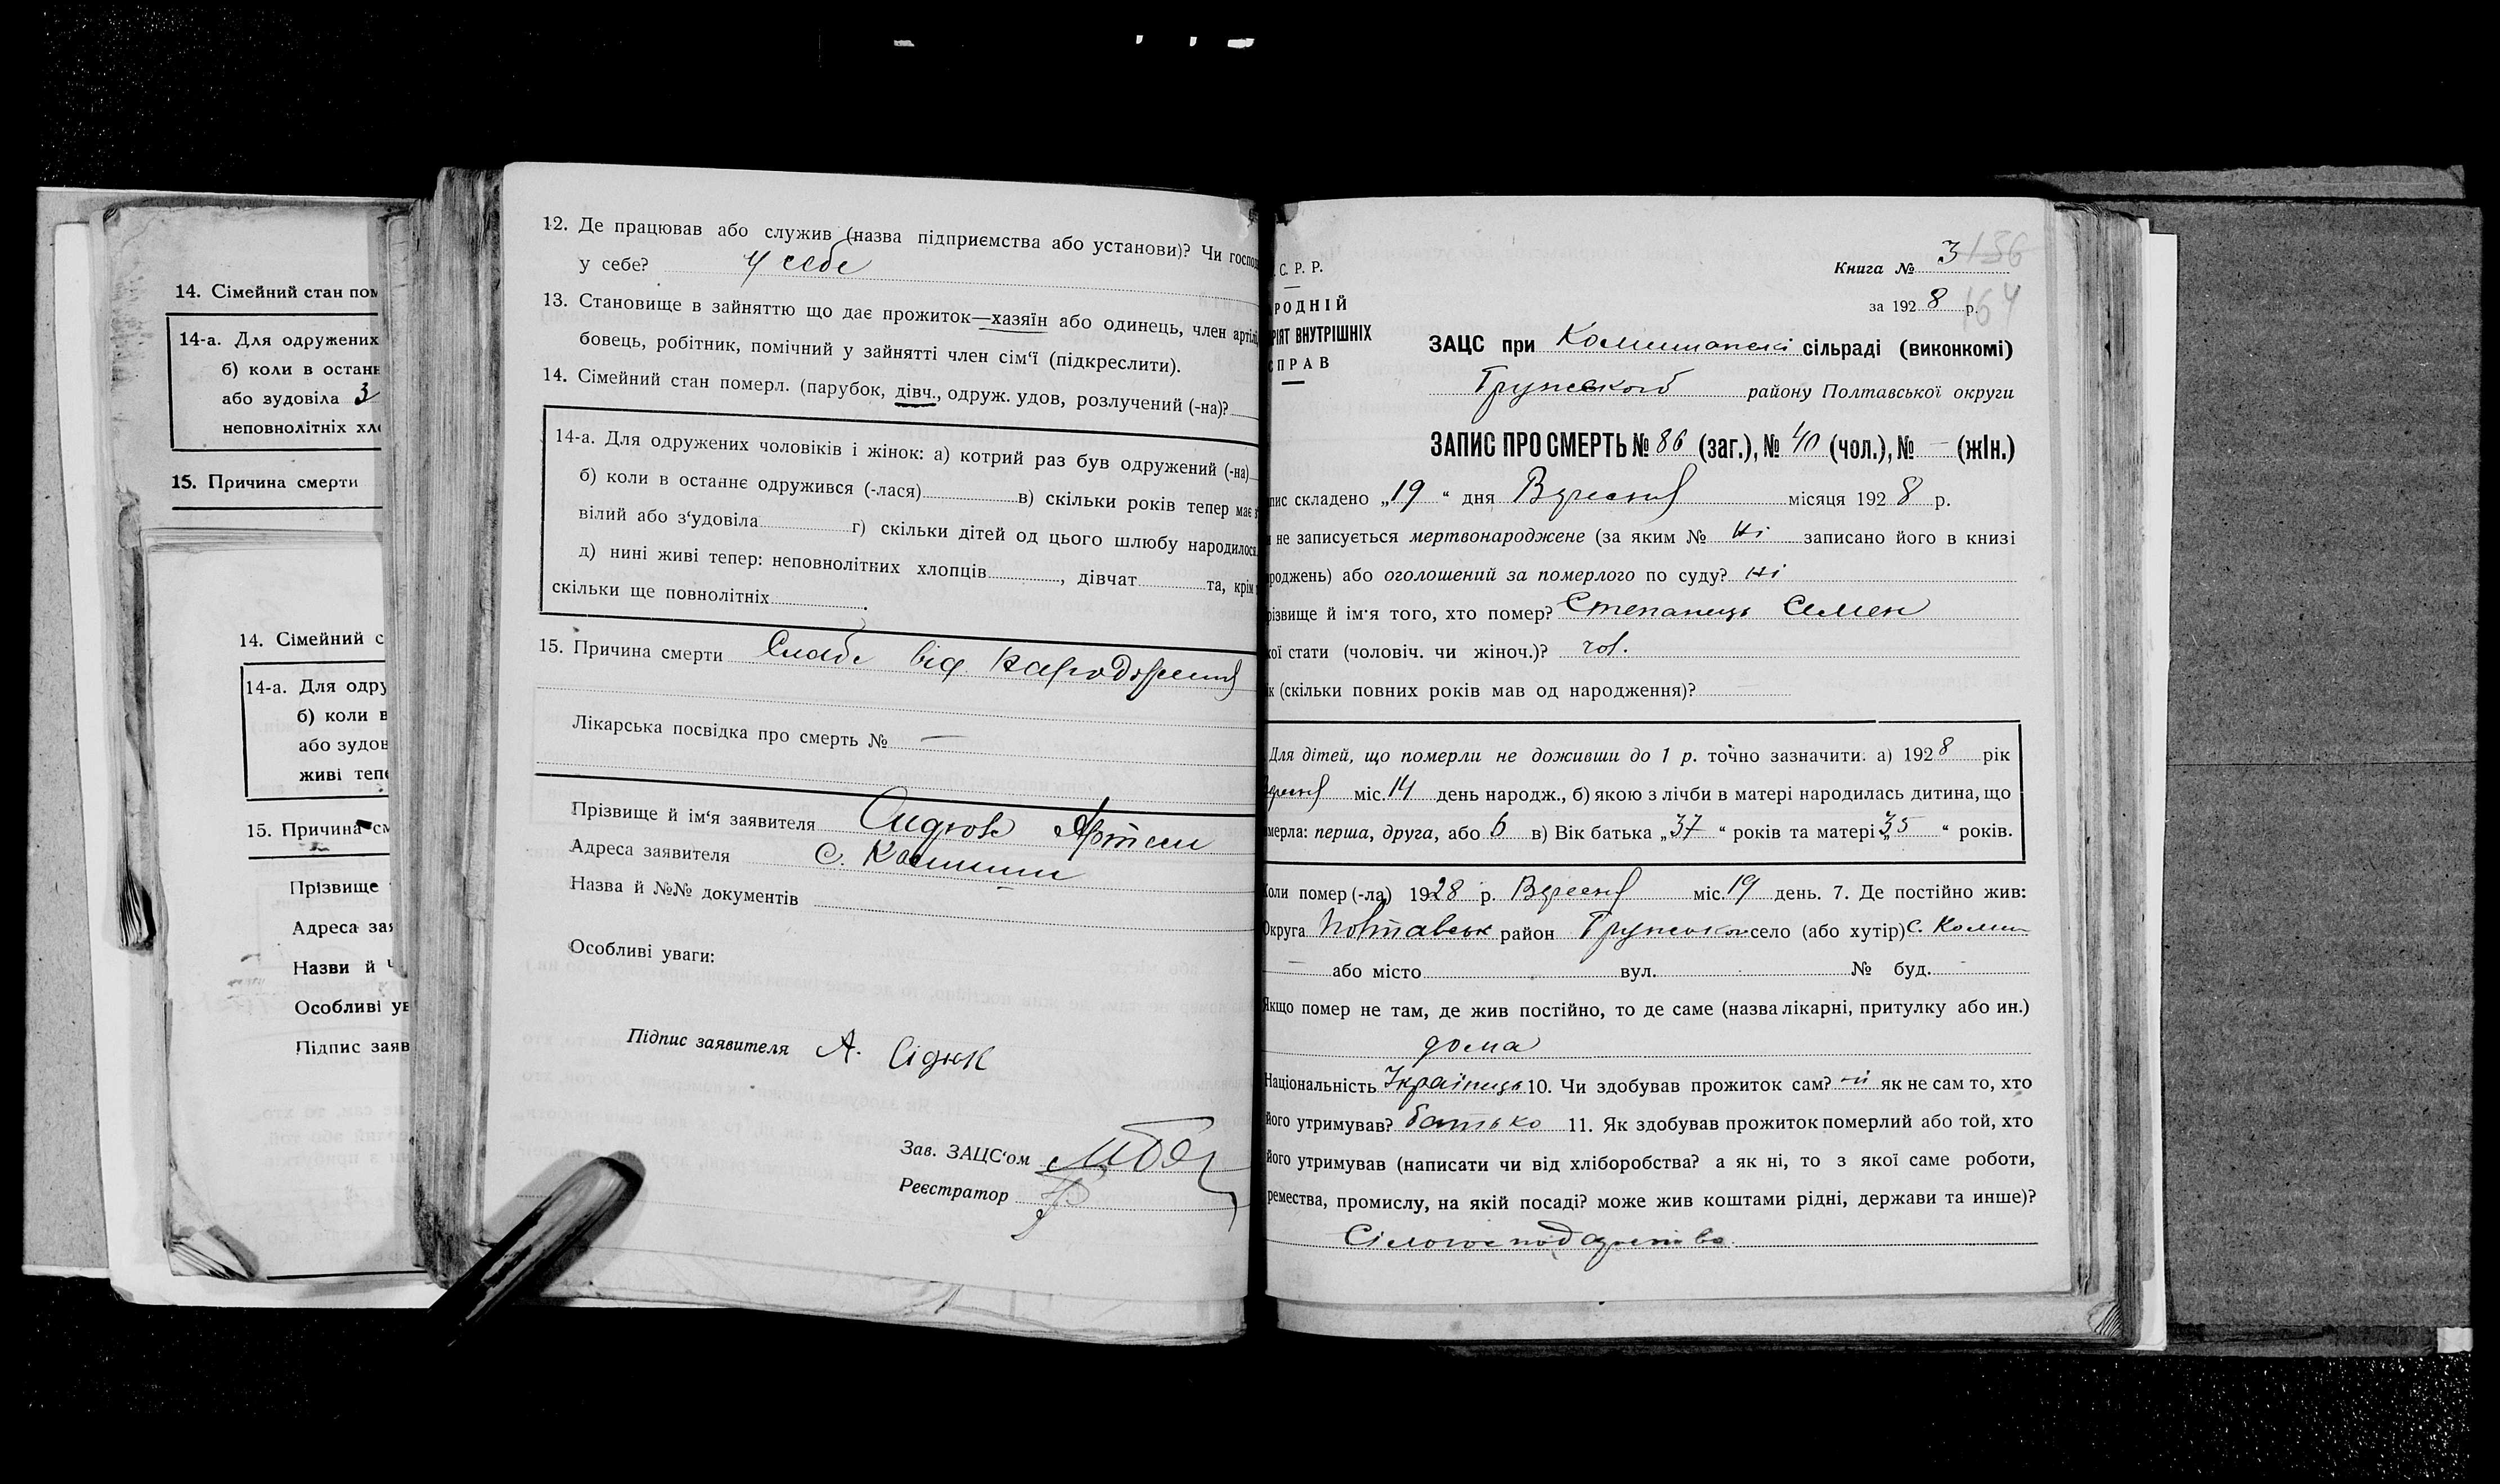 14. Сімейний стан пом
14-а. Для одружених
б) коли в останн
або зудовіла 3
неповнолітніх хло
15. Причина смерти
14. Сімейний с
14-а. Для одру
б) коли в
або зудов
живі тепе
15. Причина см
Прізвище
Адреса зая
Назви й
Особливі ув
Підпис заяв
12. Де працював або служив (назва підприємства або установи)? Чи господ
у себе? У себе
13. Становище в зайняттю що дає прожиток—хазяїн або одинець, член артілі,
бовець, робітник, помічний у зайнятті член сім'ї (підкреслити).
14. Сімейний стан померл. (парубок, дівч., одруж. удов, розлучений (-на)?
14-а. Для одружених чоловіків і жінок: а) котрий раз був одружений (-на)
б) коли в останнє одружився (-лася) в) скільки років тепер має
вілий або з'удовіла г) скільки дітей од цього шлюбу народилося
д) нині живі тепер: неповнолітних хлопців , дівчат та, крім
скільки ще повнолітніх .
15. Причина смерти Слабе від народження
Лікарська посвідка про смерть № —
Прізвище й ім'я заявителя Сидюк Артем
Адреса заявителя с. Камиши
Назва й №№ документів
Особливі уваги:
Підпис заявителя А. Сідюк
Зав. ЗАЦС'ом
Реєстратор
С. Р. Р.
РОДНІЙ
РІЯТ ВНУТРІШНІХ
СПРАВ
Книга № 3 136
за 192 8 р. 164
ЗАЦС при сільраді (виконкомі)
району Полтавської округи
ЗАПИС ПРО СМЕРТЬ № 86 (заг.), № 40 (чол.), № — (жін.)
пис складено „19“ дня Вересня місяця 192 8 р.
не записується мертвонароджене (за яким № Ні записано його в книзі
роджень) або оголошений за померлого по суду? Ні
різвище й ім'я того, хто помер? Степанець Семен
кої стати (чоловіч. чи жіноч.)? чол.
ік (скільки повних років мав од народження)?
Для дітей, що померли не доживши до 1 р. точно зазначити: а) 192 8 рік
Вересня міс. 14 день народж., б) якою з лічби в матері народилась дитина, що
мерла: перша, друга, або 6 в) Вік батька „37“ років та матері „35“ років.
Коли помер (-ла) 1928 р. Вересня міс. 19 день. 7. Де постійно жив:
Округа Полтавськ район село (або хутір) с. Комиш
— або місто вул. № буд.
Якщо помер не там, де жив постійно, то де саме (назва лікарні, притулку або ин.)
дома
Національність Українець 10. Чи здобував прожиток сам? ні як не сам то, хто
його утримував? батько 11. Як здобував прожиток померлий або той, хто
його утримував (написати чи від хліборобства? а як ні, то з якої саме роботи,
ремества, промислу, на якій посаді? може жив коштами рідні, держави та инше)?
Сілогосподарство